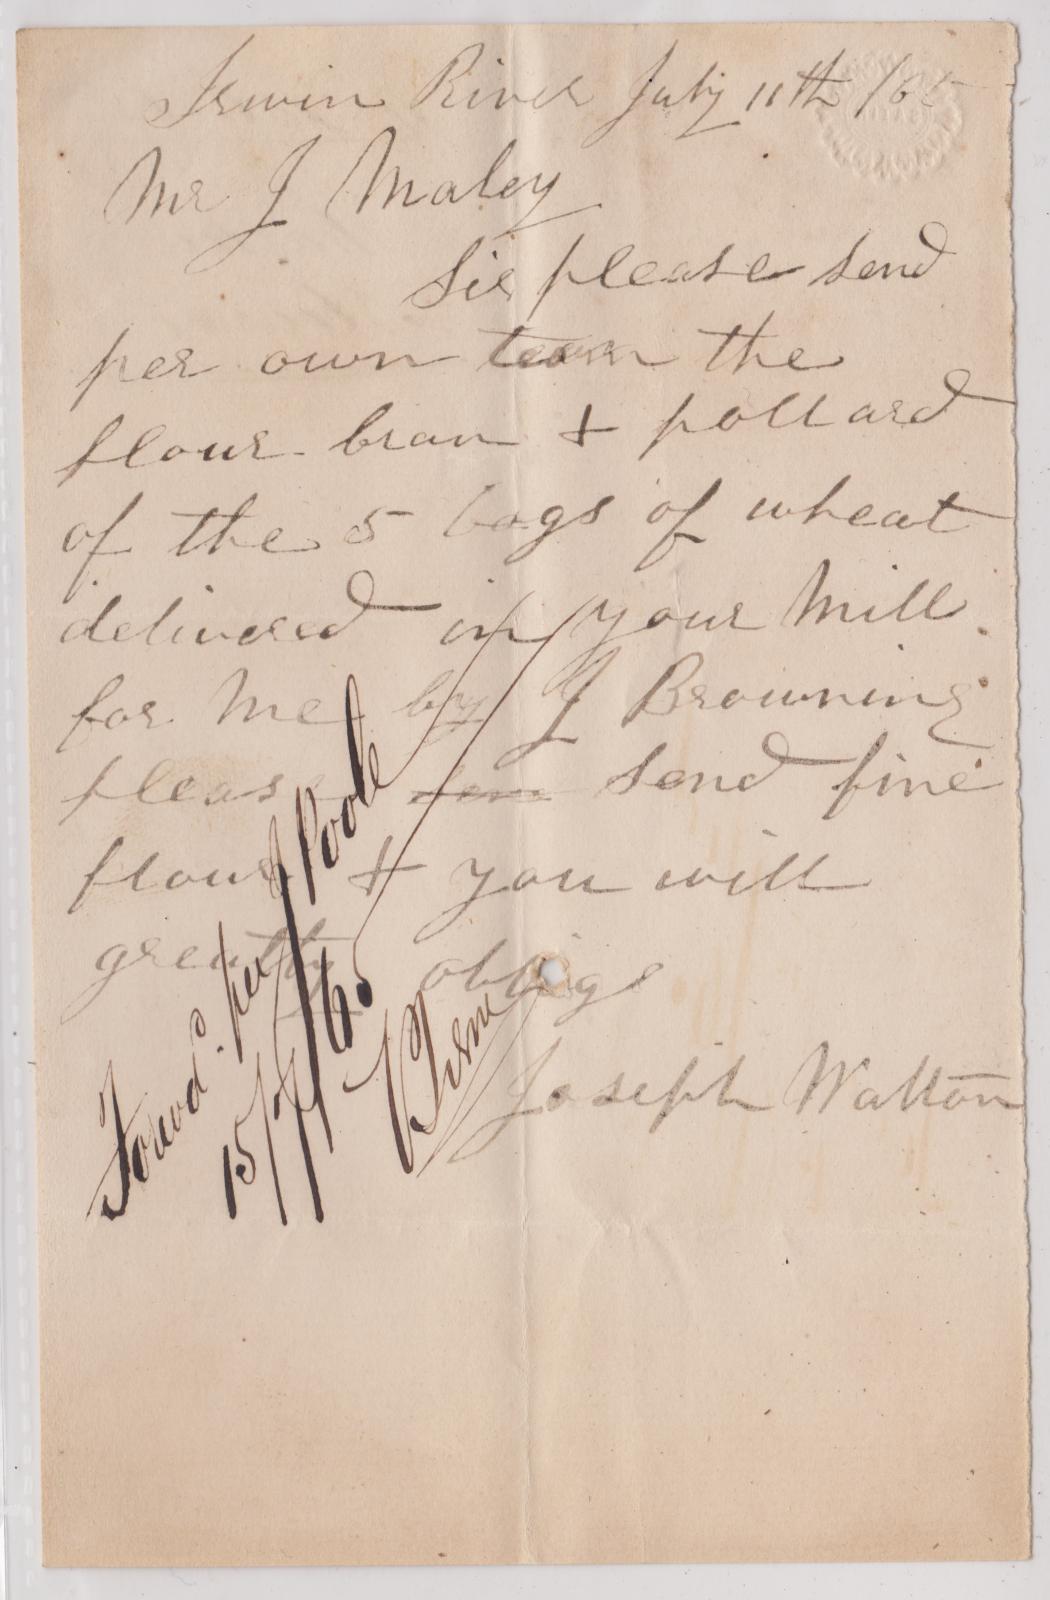 Irwin River July 11th /65
Mr J Maley
Sir please send
per own team the
flour bran & pollard
of the 5 bags of wheat
delivered in your Mill
for Me by J Browning
please sen send fine
flour & you will
greatly oblige
Joseph Walton
Forwd. per J Poole
15/7/65